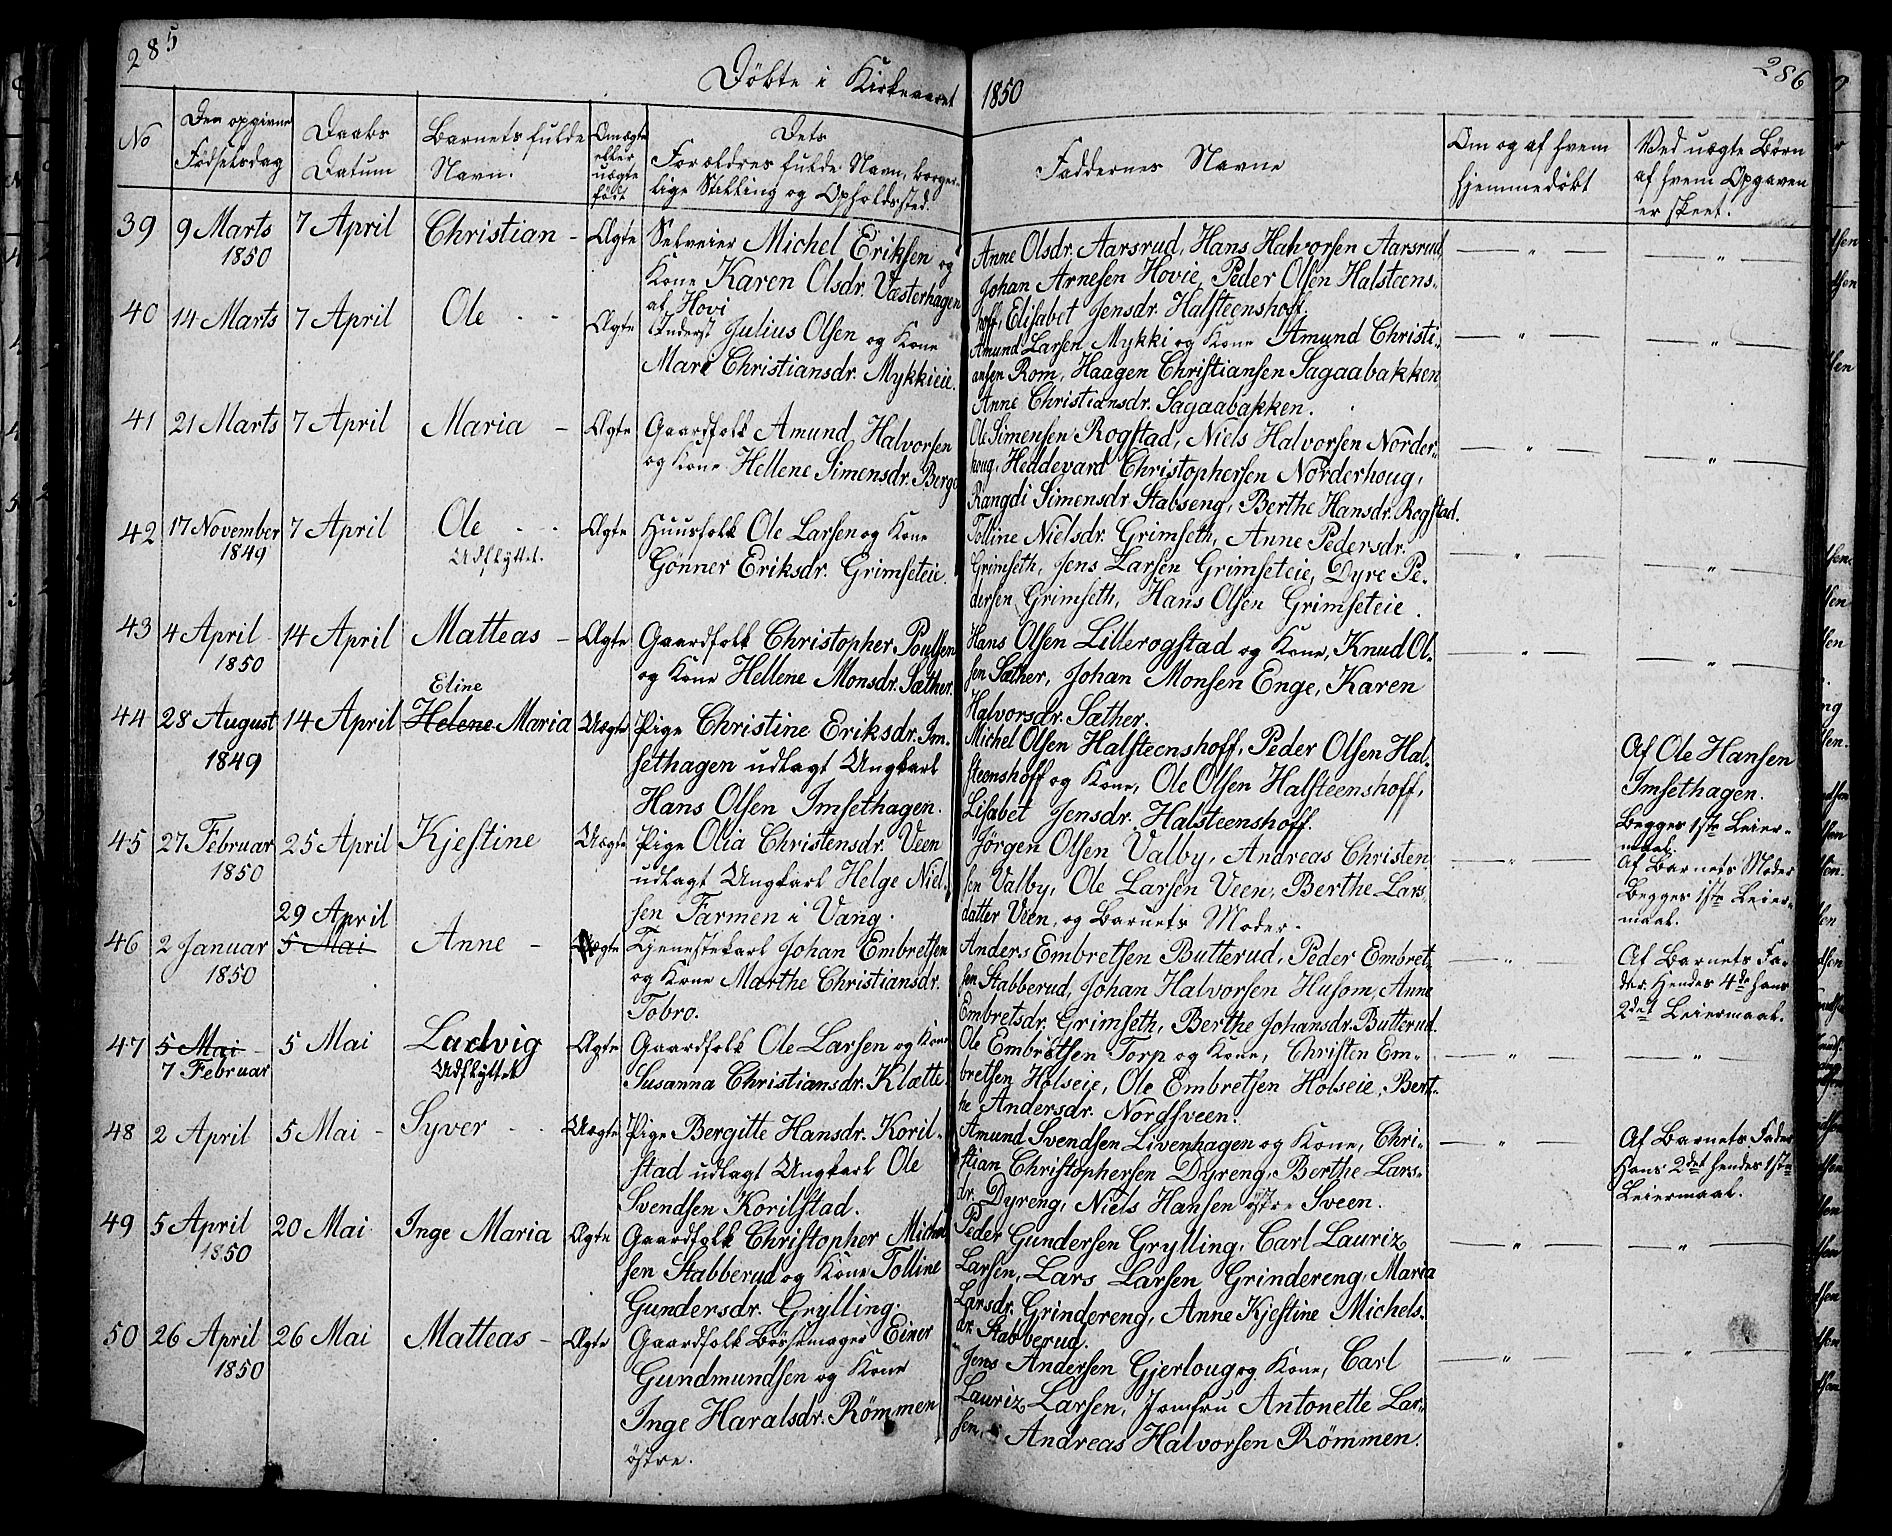 285
Döbte i Kirkeaaret 1850
286
No
Den opgivne Födselsdag
Daabs Datum
Barnets fulde Navn.
Om ægte eller uægte födt
Dets Forældres fulde Navn, borgerlige Stilling og Opholdssted.
Faddernes Navne
Om og af hvem hjemmedöbt
Ved uægte Börn af hvem Opgaven er skeet.
39 9 Marts 1850 7 April Christian - Ægte
Selveier Michel Eriksen og
Kone Karen Olsdr. Væsterhagen
af Hovi
Anne Olsdr. Aarsrud, Hans Halvorsen Aarsrud,
Johan Arnesen Hovie, Peder Olsen Halsteens-
hoff, Elisabet Jensdr. Halsteenshoff.
— " — — " —
40 14 Marts 7 April Ole - - Ægte
Inderst Julius Olsen og Kone
Mari Christiansdr. Mykkieie.
Amund Larsen Mykki og Kone Amund Christi-
ansen Rom, Haagen Christiansen Sagaabakken
Anne Christiansdr. Sagaabakken.
— " — — " —
41 21 Marts 7 April Maria - Ægte
Gaardfolk Amund Halvorsen
og Kone Hellene Simensdr. Berge
Ole Simensen Rogstad, Niels Halvorsen Norder-
houg, Heddevard Christophersen Norderhoug,
Rangdi Simensdr. Stabseng, Berthe Hansdr. Rogstad.
— " — — " —
42 17 November 1849 7 April Ole - - Udflyttet. Ægte
Huusfolk Ole Larsen og Kone
Gönner Eriksdr. Grimseteie.
Tolline Nielsdr. Grimseth, Anne Pedersdr.
Grimseth, Jens Larsen Grimseteie, Dyre Pe-
dersen Grimseth, Hans Olsen Grimseteie.
— " — — " —
43 4 April 1850 14 April Matteas - Ægte
Gaardfolk Christopher Poulsen
og Kone Hellene Monsdr. Sæther.
Hans Olsen Lillerogstad og Kone, Knud Ol-
sen Sæther, Johan Monsen Enge, Karen
Halvorsdr. Sæther.
— " — — " —
44 28 August 1849 14 April Eline Helene Maria Uægte
Pige Christine Eriksdr. Im-
sethagen udlagt Ungkarl
Hans Olsen Imsethagen.
Michel Olsen Halsteenshoff, Peder Olsen Hal-
steenshoff og Kone, Ole Olsen Halsteenshoff,
Lisabet Jensdr. Halsteenshoff.
Af Ole Hansen
Imsethagen.
Begges 1ste Leier-
maal.
45 27 Februar 1850 25 April Kjestine Uægte
Pige Olia Christensdr. Veen
udlagt Ungkarl Helge Niel-
sen Farmen i Vang.
Jörgen Olsen Valby, Andreas Christen
sen Valby, Ole Larsen Veen, Berthe Lars
datter Veen, og Barnets Moder.
— " —
Af Barnets Moder
Begges 1ste Leier-
maal.
46 2 Januar 1850 29 April 5 Mai Anne - Uægte
Tjenestekarl Johan Embretsen
og Kone Marthe Christiansdr.
Tobro.
Anders Embretsen Butterud, Peder Embret-
sen Stabberud, Johan Halvorsen Husom, Anne
Embretsdr. Grimseth, Berthe Johansdr. Butterud.
— " —
Af Barnets Fa-
der. Hendes 4de hans
2det Leiermaal.
47 5 Mai 7 Februar 5 Mai Ludvig Udflyttet Ægte
Gaardfolk Ole Larsen og Kone
Susanna Christiansdr. Klætte
Ole Embretsen Torp og Kone, Christen Em-
bretsen Holseie, Ole Embretsen Holseie, Bert-
he Andersdr. Nordsveen.
— " — — " —
48 2 April 5 Mai - Syver - - Uægte
Pige Bergitte Hansdr. Koril-
stad udlagt Ungkarl Ole
Svendsen Korilstad.
Amund Svendsen Livenhagen og Kone, Chri-
stian Christophersen Dyreng, Berthe Lars-
dr. Dyreng, Niels Hansen östre Sveen.
— " —
Af Barnets Fader
Hans 2det hendes 1ste
Leiermaal.
49 5 April 1850 20 Mai Inge Maria Ægte
Gaardfolk Christopher Michel
sen Stabberud og Kone Tolline
Gundersdr. Grylling.
Peder Gundersen Grylling, Carl Lauriz
Larsen, Lars Larsen Grindereng, Maria
Larsdr. Grindereng, Anne Kjestine Michels-
dr. Stabberud.
— " — — " —
50 26 April 1850 26 Mai Matteas - Ægte
Gaardfolk Bössemager Einer
Gundmundsen og Kone
Inge Haralsdr. Römmen
östre.
Jens Andersen Gjerloug og Kone, Carl
Lauriz Larsen, Jomfru Antonette Lar-
sen, Andreas Halvorsen Römmen.
— " — — " —